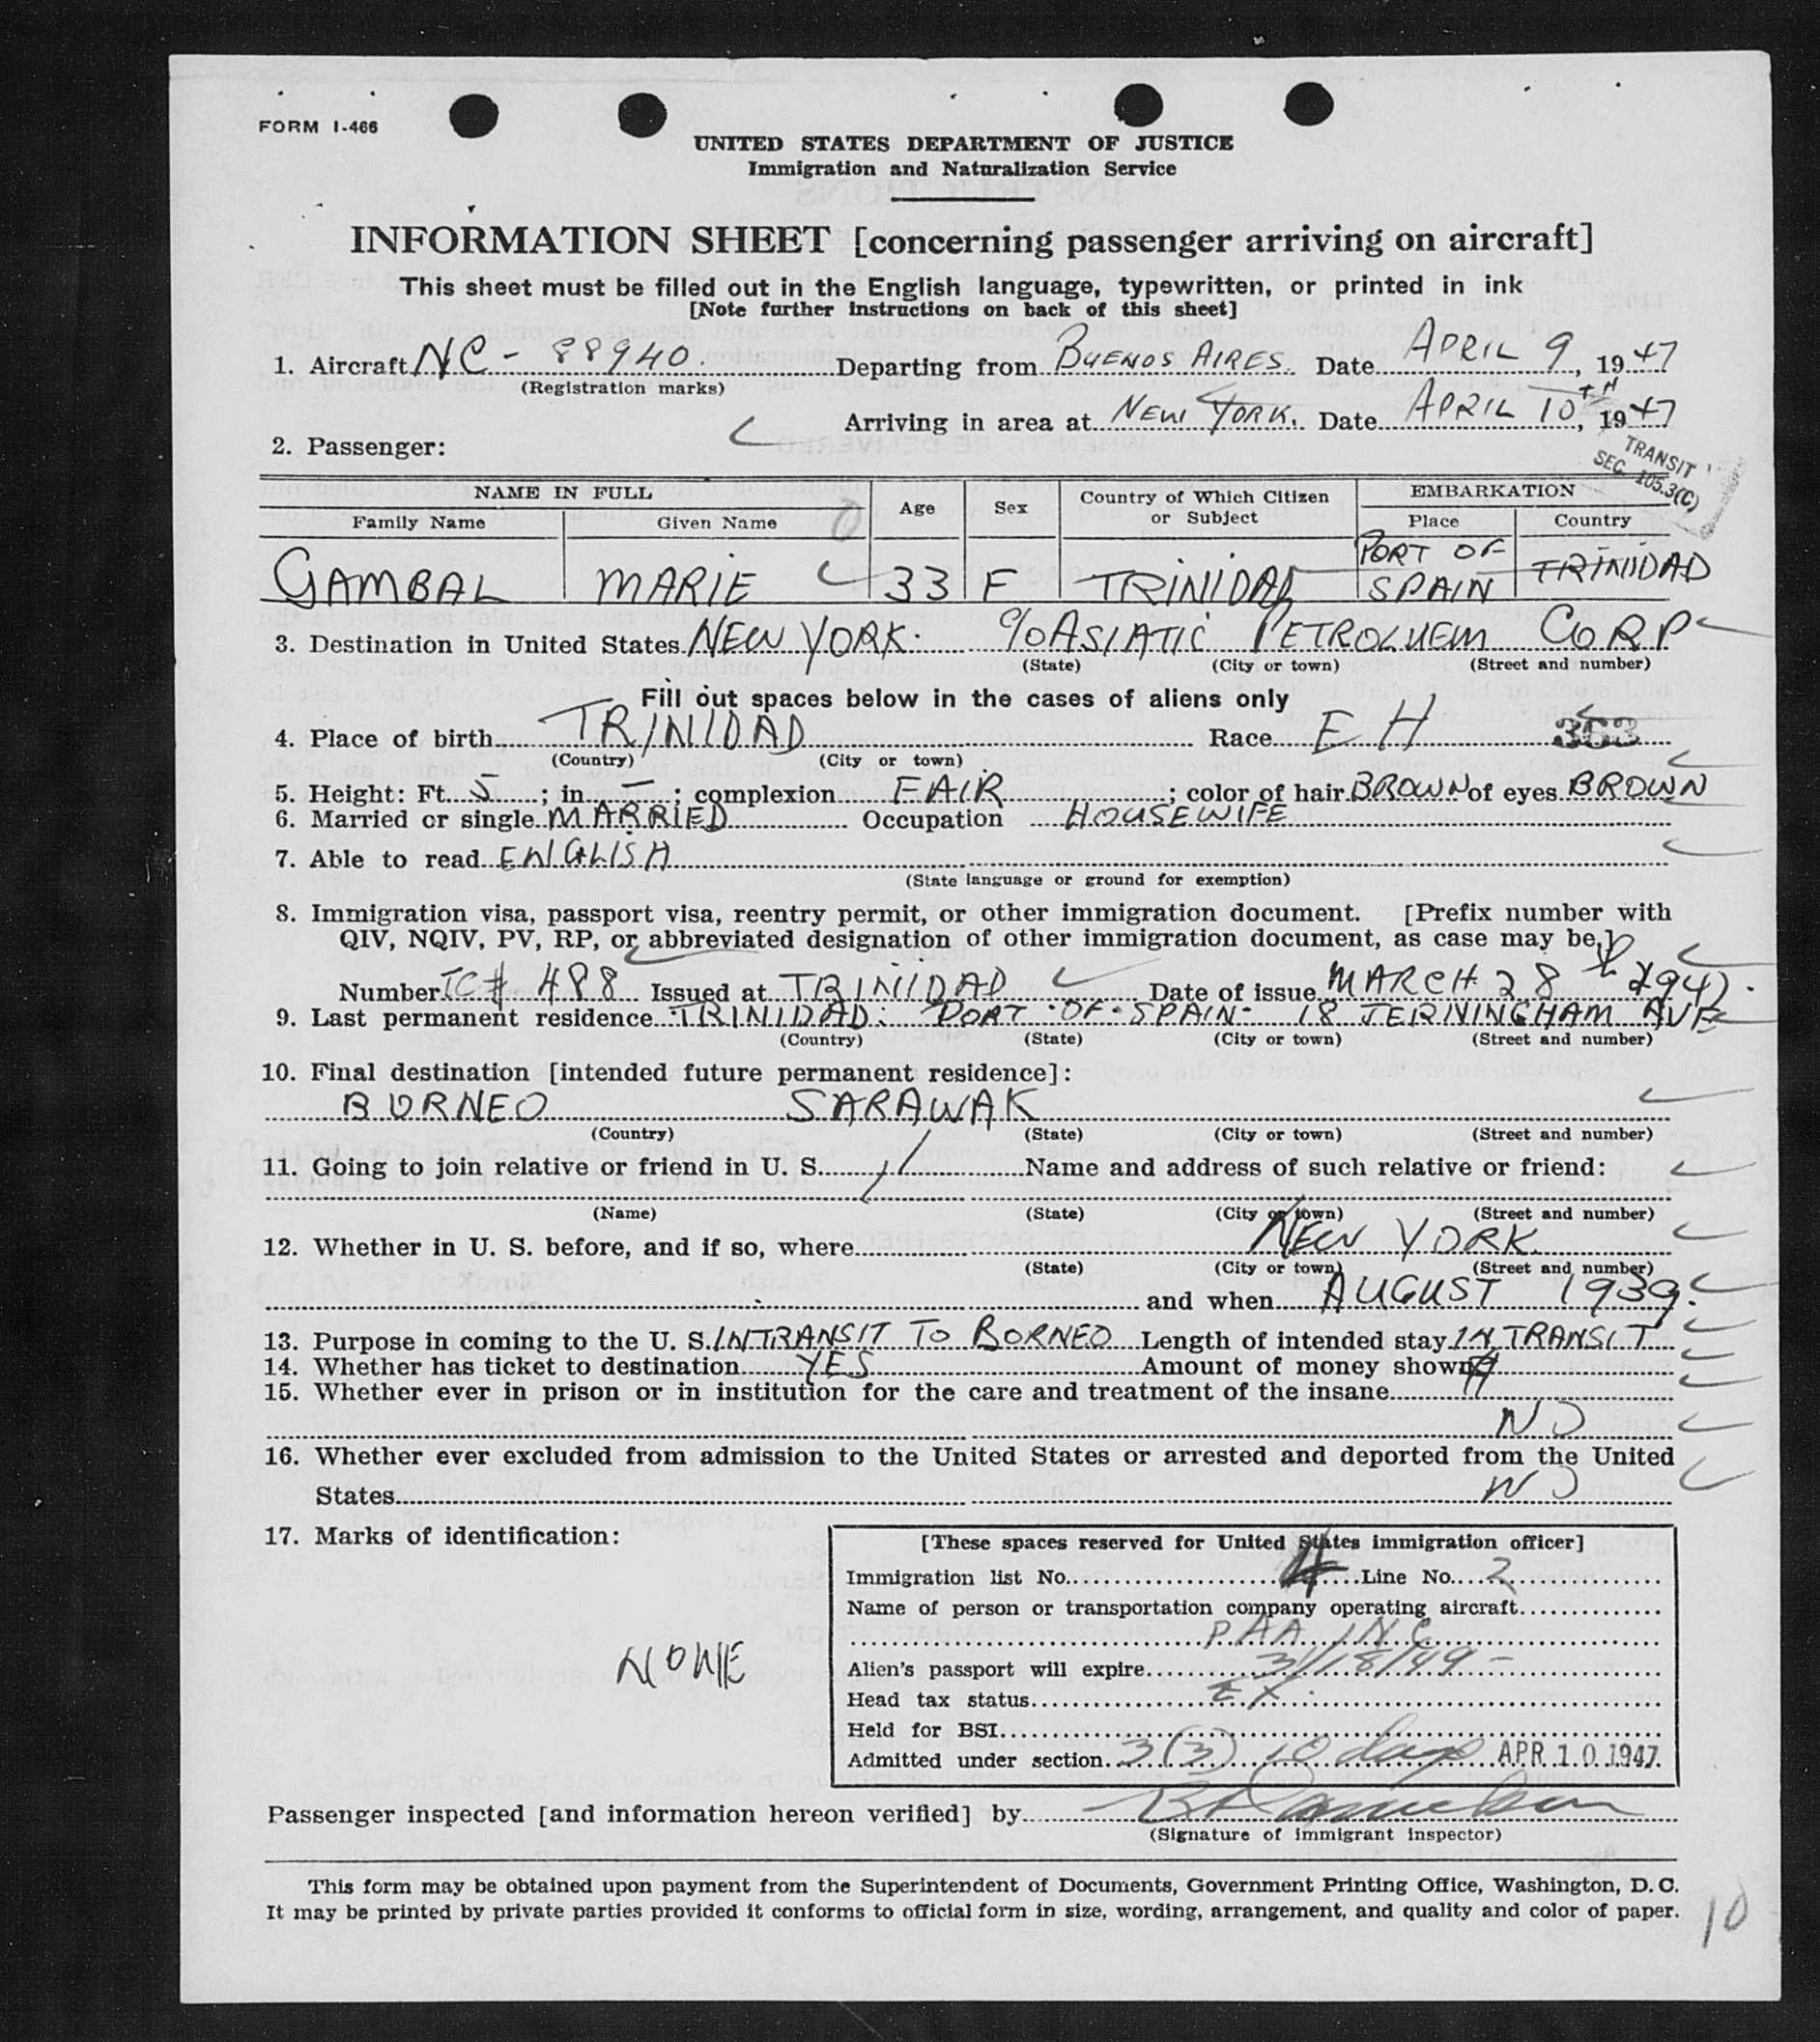 FORM I-466
UNITED STATES DEPARTMENT OF JUSTICE
Immigration and Naturalization Service
INFORMATION SHEET [concerning passenger arriving on aircraft]
This sheet must be filled out in the English language, typewritten, or printed in ink
[Note further instructions on back of this sheet]
1. Aircraft NC - 88940. Departing from BUENOS AIRES. Date APRIL 9, 1947
(Registration marks)
Arriving in area at NEW YORK. Date APRIL 10TH, 1947
2. Passenger:
TRANSIT
SEC. 105.3(C)
NAME IN FULL Age Sex Country of Which Citizen or Subject EMBARKATION
Family Name Given Name Place Country
GAMBAL MARIE 33 F TRINIDAD PORT OF SPAIN TRINIDAD
3. Destination in United States NEW YORK. c/o ASIATIC PETROLUEM CORP
(State) (City or town) (Street and number)
Fill out spaces below in the cases of aliens only
4. Place of birth TRINIDAD Race E H 363
(Country) (City or town)
5. Height: Ft. 5 ; in. — ; complexion FAIR ; color of hair BROWN of eyes BROWN
6. Married or single MARRIED Occupation HOUSEWIFE
7. Able to read ENGLISH
(State language or ground for exemption)
8. Immigration visa, passport visa, reentry permit, or other immigration document. [Prefix number with
QIV, NQIV, PV, RP, or abbreviated designation of other immigration document, as case may be.]
Number TC# 488 Issued at TRINIDAD Date of issue MARCH 28 1947.
9. Last permanent residence TRINIDAD. PORT-OF-SPAIN- 18 JERNINGHAM AVE
(Country) (State) (City or town) (Street and number)
10. Final destination [intended future permanent residence]:
BORNEO SARAWAK
(Country) (State) (City or town) (Street and number)
11. Going to join relative or friend in U. S. Name and address of such relative or friend:
(Name) (State) (City or town) (Street and number)
12. Whether in U. S. before, and if so, where NEW YORK.
(State) (City or town) (Street and number)
and when AUGUST 1939.
13. Purpose in coming to the U. S. INTRANSIT TO BORNEO Length of intended stay IN TRANSIT
14. Whether has ticket to destination YES Amount of money shown
15. Whether ever in prison or in institution for the care and treatment of the insane
NO
16. Whether ever excluded from admission to the United States or arrested and deported from the United
States NO
17. Marks of identification:
NONE
[These spaces reserved for United States immigration officer]
Immigration list No. 4 Line No. 2
Name of person or transportation company operating aircraft
PAA INC
Alien's passport will expire 3/18/49 -
Head tax status EX.
Held for BSI
Admitted under section 3(3) 10 days APR 10 1947
Passenger inspected [and information hereon verified] by
(Signature of immigrant inspector)
This form may be obtained upon payment from the Superintendent of Documents, Government Printing Office, Washington, D. C.
It may be printed by private parties provided it conforms to official form in size, wording, arrangement, and quality and color of paper.
10